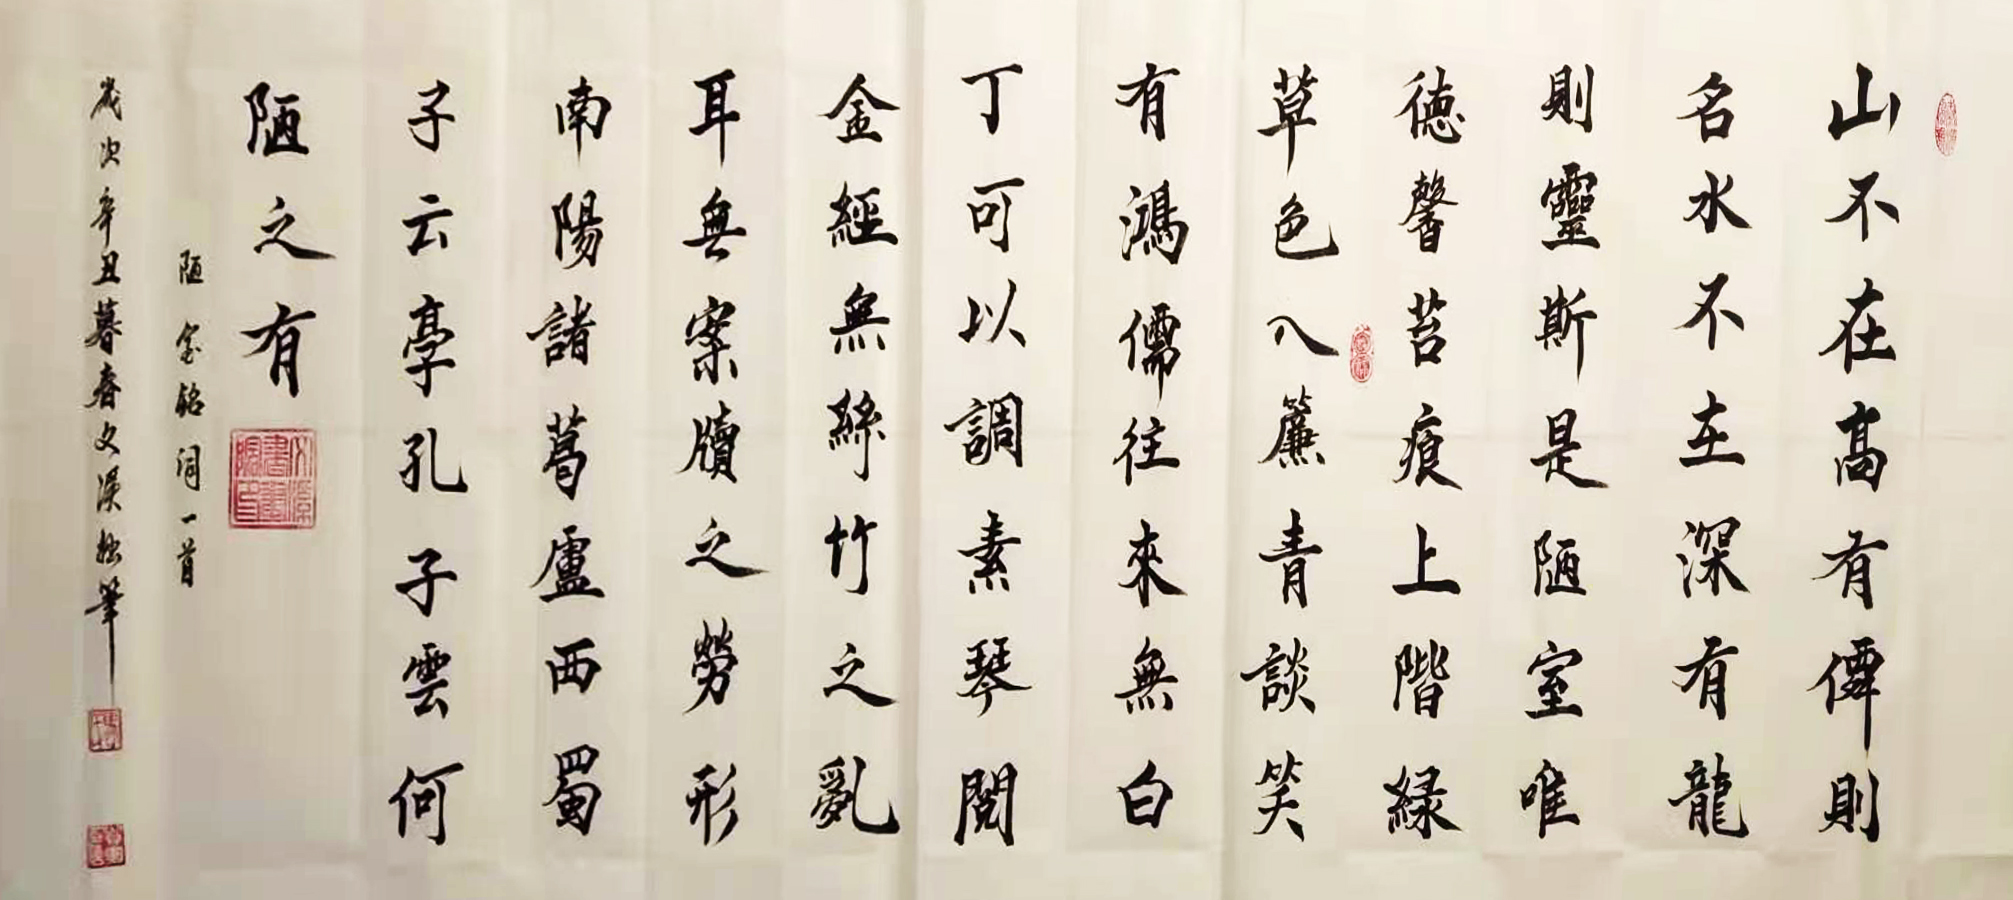 山不在高有僊則
名水不在深有龍
則靈斯是陋室唯
德馨苔痕上階緑
草色入簾青談笑
有鴻儒往來無白
丁可以調素琴閱
金經無絲竹之亂
耳無案牘之勞形
南陽諸葛盧西蜀
子云亭孔子雲何
陋之有
陋室銘词一首
歲次辛丑暮春文溪拙筆